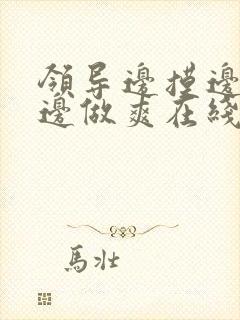 領导邊摸邊
邊做爽在綫
馬壯